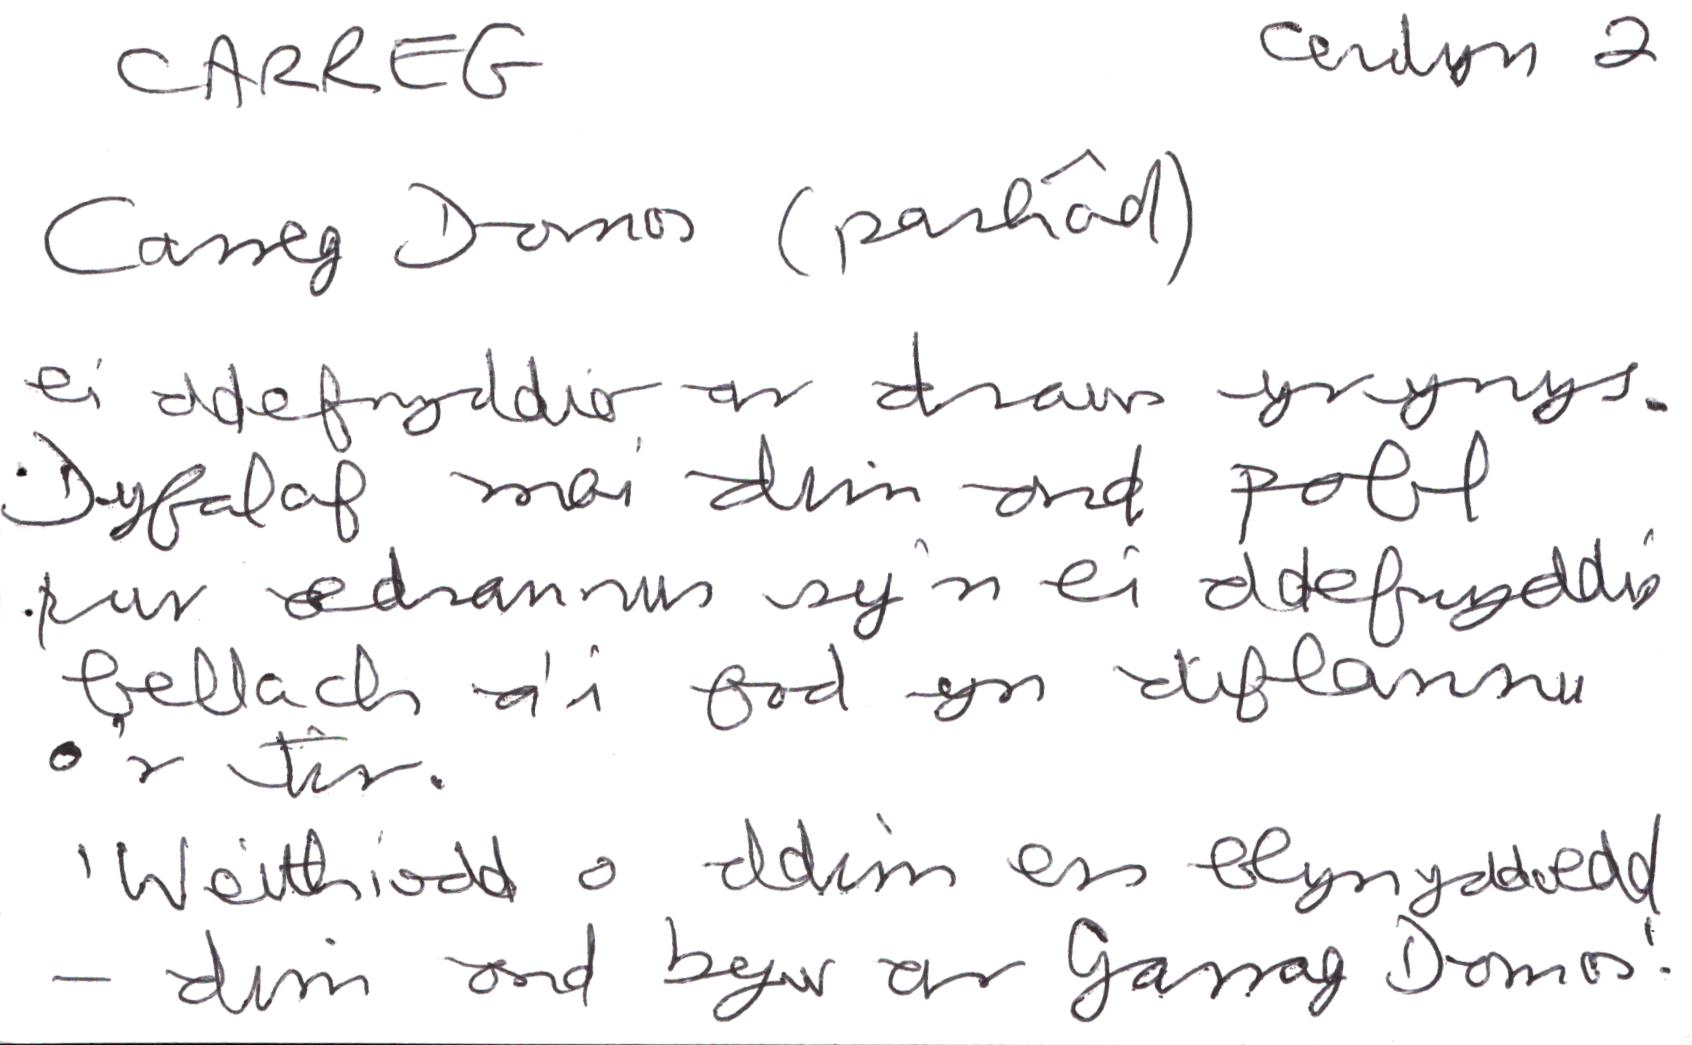 CARREG
Cerdyn 2
Carreg Domos (parhâd)
ei ddefnyddio ar draws yr ynys.
Dyfalaf mai dim ond pobl
pur oedrannus sy'n ei ddefnyddio
bellach a'i fod yn diflannu
o'r tir.
'Weithiodd o ddim ers blynyddoedd
– dim ond byw ar Garrag Domos'.